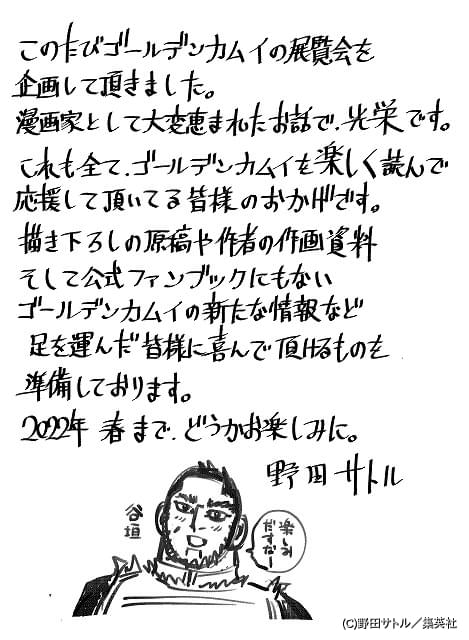 このたびゴールデンカムイの展覧会を
企画して頂きました。
漫画家として大変恵まれたお話で、光栄です。
これも全て、ゴールデンカムイを楽しく読んで
応援して頂いてる皆様のおかげです。
描き下ろしの原稿や作者の作画資料
そして公式ファンブックにもない
ゴールデンカムイの新たな情報など
足を運んだ皆様に喜んで頂けるものを
準備しております。
2022年 春まで、どうかお楽しみに。
野田サトル
谷垣
楽しみ
だすなー
(C)野田サトル／集英社